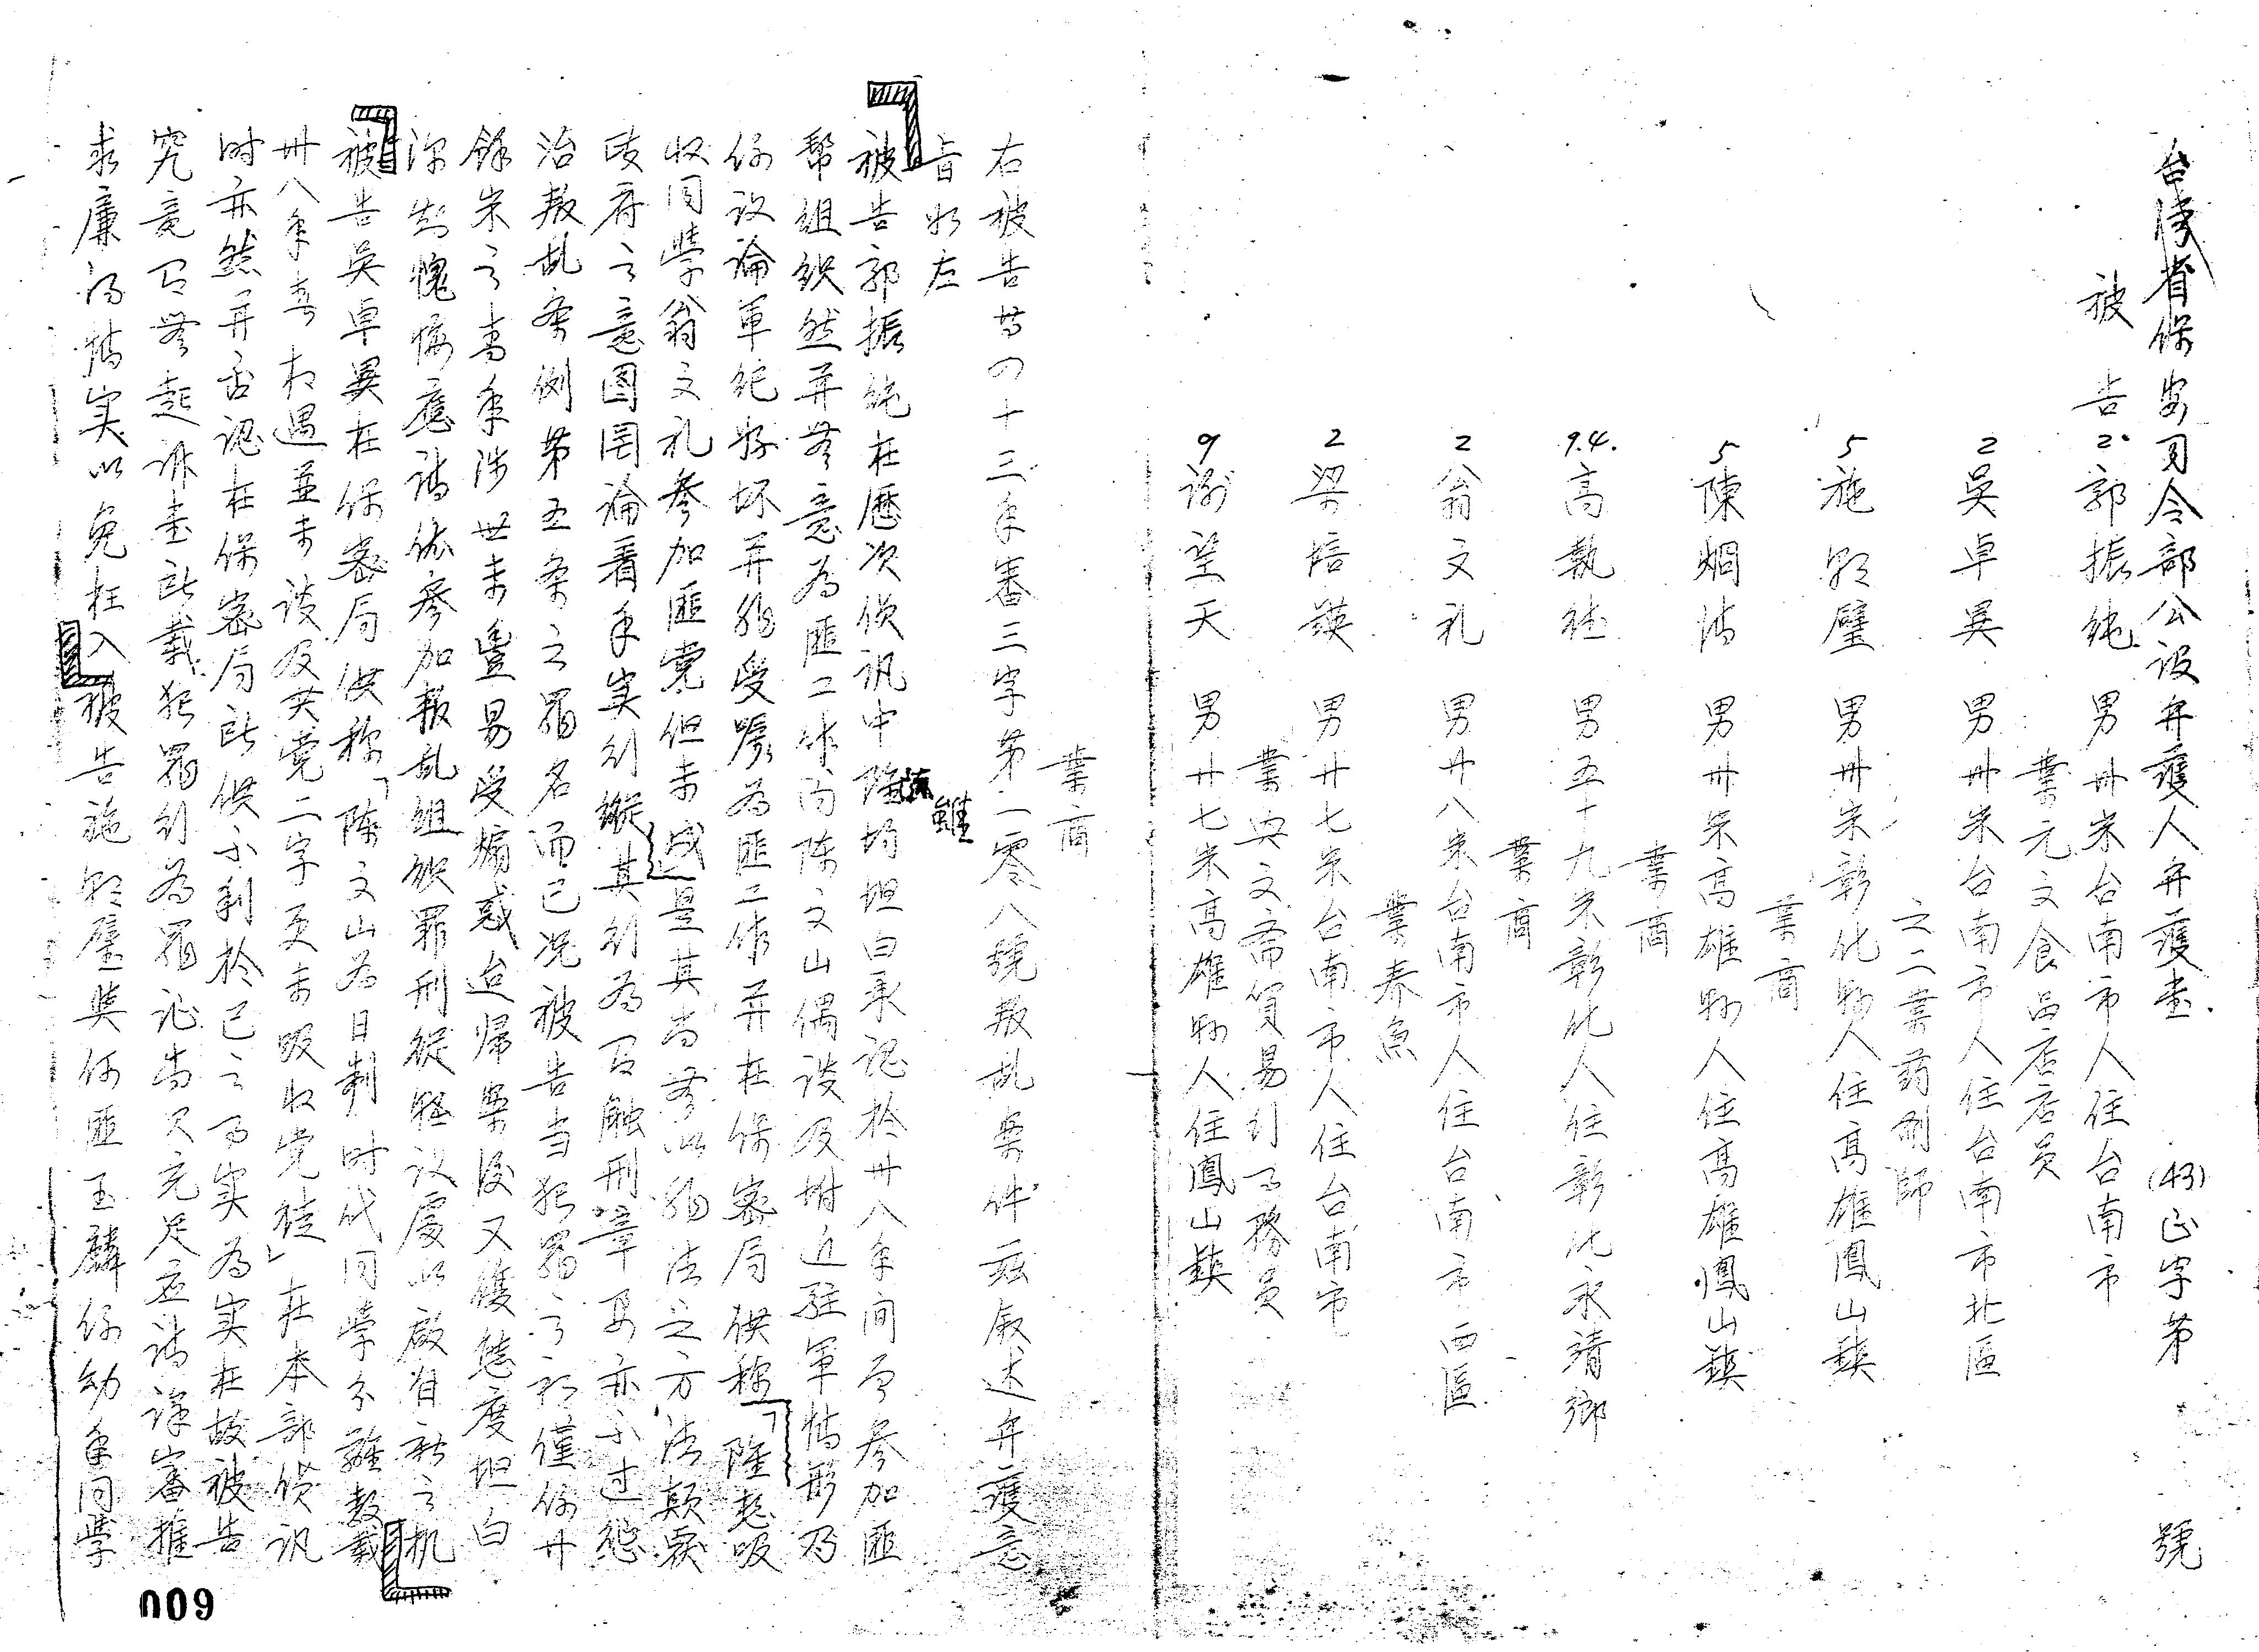 台湾省保安司令部公設弁護人弁護書 (43)正字第 號
被告 2. 郭振純 男 卅米 台南市人住台南市
業元文食品店店員
2 吳卓異 男 卅米 台南市人住台南市北區
之二業葯剤師
5 施 璧 男 卅米 彰化縣人住高雄鳳山鎮
業商
5 陳烱 男 卅米 高雄縣人住高雄鳳山鎮
業商
9.4. 高執 男 五十九米 彰化人住彰化永靖鄉
業商
2 翁文礼 男 廿八米 台南市人住台南市西區
業养魚
2 梁培鍈 男 廿七米 台南市人住台南市
業典文斋貿易行事務員
9 謝望天 男 廿七米 高雄縣人住鳳山鎮
業商
右被告等四十三年審三字第一零八號叛乱案件茲叙述弁護意
旨如左
被告郭振純在歷次偵訊中雖均坦白承認於卅八年间曾参加匪
帮組织然并無意為匪工作向陈文山偶談及附近駐軍情形乃
係议論軍纪好坏并非受嘱為匪工作并在保密局供稱「隆懋吸
收同學翁文礼参加匪党但未成是其尚無以非法之方法颠覆
政府之意图罔論看手实行縱其行為有触刑章要亦不过惩
治叛乱条例第五条之罪名而已况被告当犯罪之初僅係廿
餘米之青年涉世未豐易受煽惑迨帰案後又穫態度坦白
深知愧悔應請依参加叛乱組织罪刑從輕议處以啟自新之机
被告吳卓異在保密局供称「陈文山為日制时代同學分離数載
卅八年春相遇並未谈及共党二字更未吸收党徒」在本部偵訊
时亦然并否認在保密局所供不利於己之事实為实在故被告
究竟有無起訴書所載犯罪行為罪证尚欠充足应請详審推
求廉得情实以免枉入被告施 璧與何匪玉麟係幼年同學
009